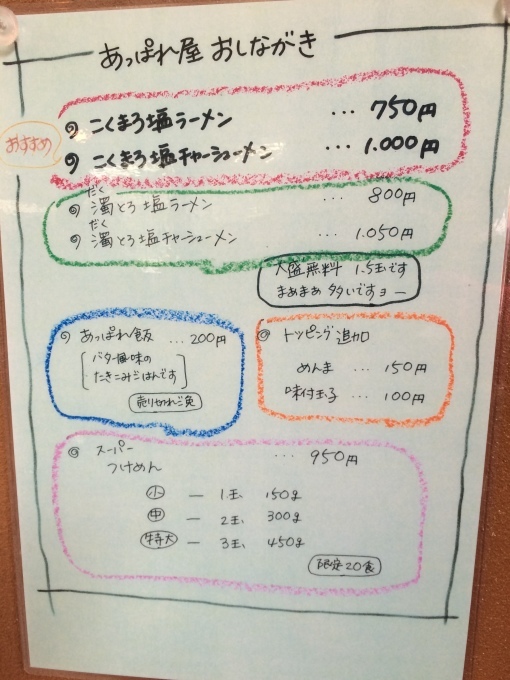 あっぱれ屋 おしながき
おすすめ
◎ こくまろ塩ラーメン ... 750円
◎ こくまろ塩チャーシューメン ... 1.000円
だく
◎ 濁とろ塩ラーメン ... 800円
だく
◎ 濁とろ塩チャーシューメン ... 1.050円
大盛無料 1.5玉です
まぁまぁ 多いですヨー
◎ あっぱれ飯 ... 200円
バター風味の
たきこみごはんです
売り切れご免
◎ トッピング追加
めんま ... 150円
味付玉子 ... 100円
◎ スーパー
つけめん ... 950円
小 ー 1玉 150g
中 ー 2玉 300g
特大 ー 3玉 450g
限定20食